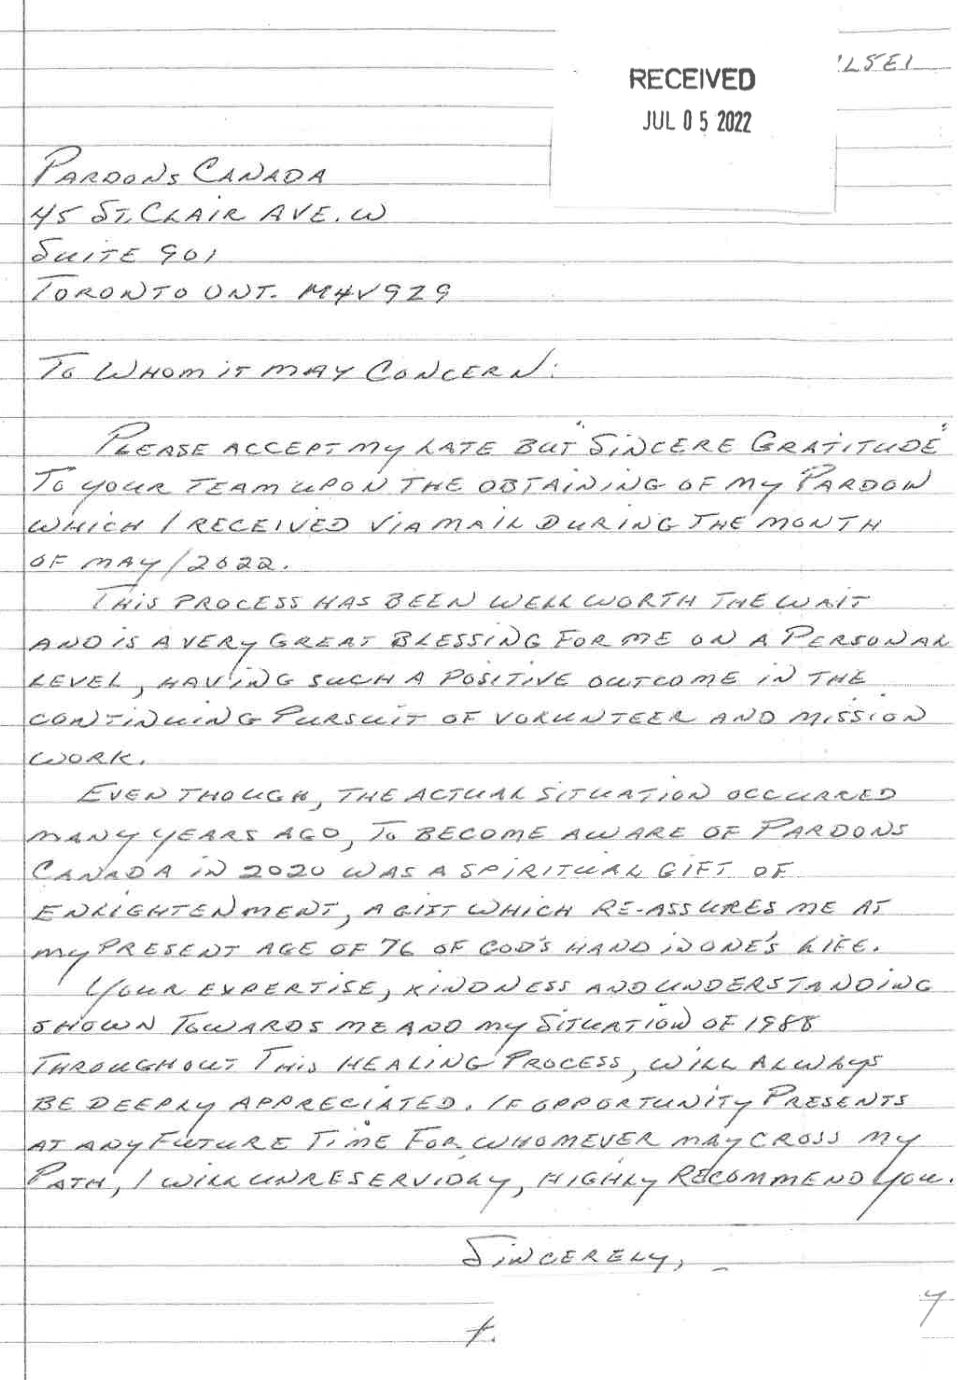 L5E1
RECEIVED
JUL 05 2022
PARDONS CANADA
45 ST. CLAIR AVE. W
SUITE 901
TORONTO ONT. M4V9Z9
TO WHOM IT MAY CONCERN:
PLEASE ACCEPT MY LATE BUT "SINCERE GRATITUDE"
TO YOUR TEAM UPON THE OBTAINING OF MY PARDON
WHICH I RECEIVED VIA MAIL DURING THE MONTH
OF MAY/2022.
THIS PROCESS HAS BEEN WELL WORTH THE WAIT
AND IS A VERY GREAT BLESSING FOR ME ON A PERSONAL
LEVEL, HAVING SUCH A POSITIVE OUTCOME IN THE
CONTINUING PURSUIT OF VOLUNTEER AND MISSION
WORK.
EVEN THOUGH, THE ACTUAL SITUATION OCCURRED
MANY YEARS AGO, TO BECOME AWARE OF PARDONS
CANADA IN 2020 WAS A SPIRITUAL GIFT OF
ENLIGHTENMENT, A GIFT WHICH RE-ASSURES ME AT
MY PRESENT AGE OF 76 OF GOD'S HAND IN ONE'S LIFE.
YOUR EXPERTISE, KINDNESS AND UNDERSTANDING
SHOWN TOWARDS ME AND MY SITUATION OF 1988
THROUGHOUT THIS HEALING PROCESS, WILL ALWAYS
BE DEEPLY APPRECIATED. IF OPPORTUNITY PRESENTS
AT ANY FUTURE TIME FOR WHOMEVER MAY CROSS MY
PATH, I WILL UNRESERVIDLY, HIGHLY RECOMMEND YOU.
SINCERELY,